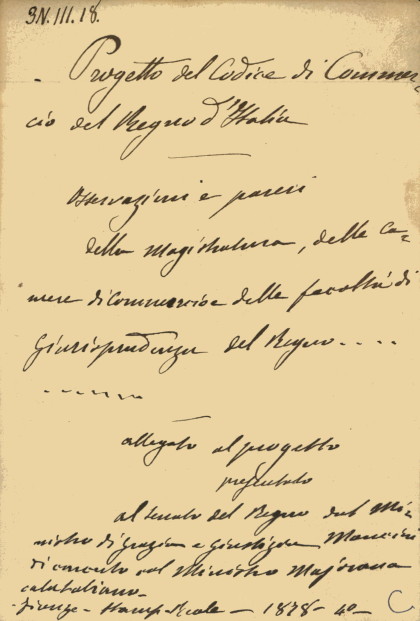 3N.III.18.
Progetto del Codice di Commer-
cio del Regno d'Italia
Osservazioni e pareri
della Magistratura, delle Ca-
mere di Commercio e delle facoltà di
Giurisprudenza del Regno....
allegato al progetto
presentato
al senato del Regno dal Mi-
nistro di grazia e giustizia Mancini
di concerto col Ministro Majorana
calatabiano-
Firenze - Stamp. Reale - 1878 - 4º -
C